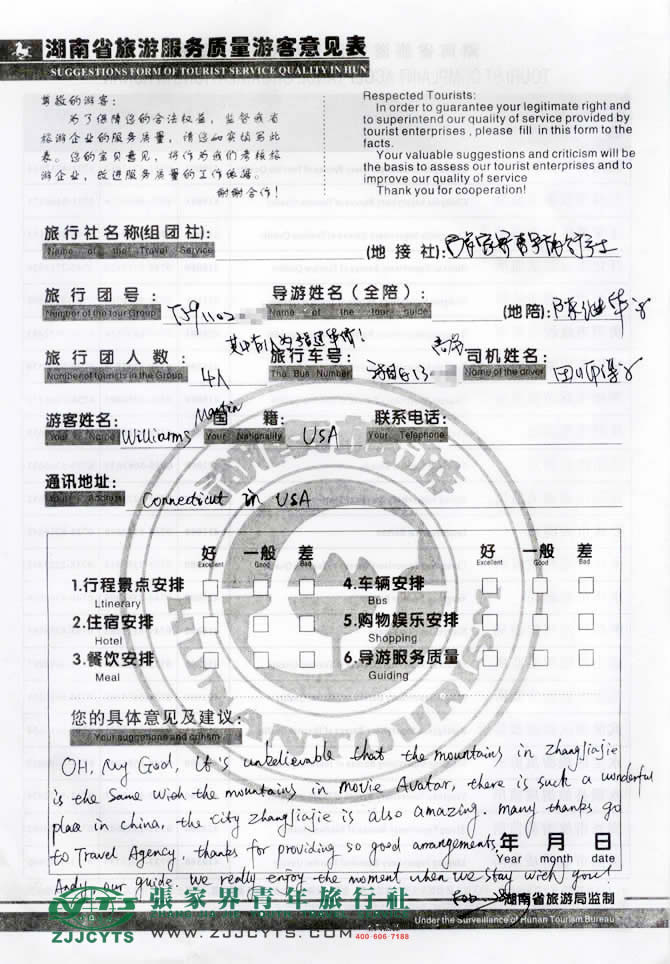 湖南省旅游服务质量游客意见表
SUGGESTIONS FORM OF TOURIST SERVICE QUALITY IN HUN
尊敬的游客：
为了保障您的合法权益，监督我省
旅游企业的服务质量，请您如实填写此
表。您的宝贝意见，将作为我们考核旅
游企业，改进服务质量的工作依据。
谢谢合作！
Respected Tourists:
In order to guarantee your legitimate right and
to superintend our quality of service provided by
tourist enterprises , please fill in this form to the
facts.
Your valuable suggestions and criticism will be
the basis to assess our tourist enterprises and to
improve our quality of service
Thank you for cooperation!
旅行社名称(组团社):
Name of the Travel Service
(地接社):
旅行团号：
Number of the Tour Group
导游姓名(全陪)：
Name of the tour guide
(地陪):
旅行团人数：
Number of tourists in the Group
4人
旅行车号：
The Bus Number
司机姓名：
Name of the driver
游客姓名：
Your Name
Williams Martin
国籍：
Your Nationality
USA
联系电话：
Your Telephone
通讯地址：
Your Address
Connecticut in USA
好 一般 差 好 一般 差
Excellent Good Bad Excellent Good Bad
1.行程景点安排 4.车辆安排
Ltinerary Bus
2.住宿安排 5.购物娱乐安排
Hotel Shopping
3.餐饮安排 6.导游服务质量
Meal Guiding
HUNANTOURISM
您的具体意见及建议：
Your suggestions and critism
OH, My God, It's unbelievable that the mountains in Zhangjiajie
is the Same with the mountains in movie Avatar, there is such a wonderful
place in China, the city Zhangjiajie is also amazing. many thanks go
to Travel Agency, thanks for providing so good arrangements.
Andy our guide. we really enjoy the moment when we stay with you!
年 月 日
Year month date
湖南省旅游局监制
Under the Surveillance of Hunan Tourism Bureau
张家界青年旅行社
ZJJCYTS
WWW.ZJJCYTS.COM
400 606 7188